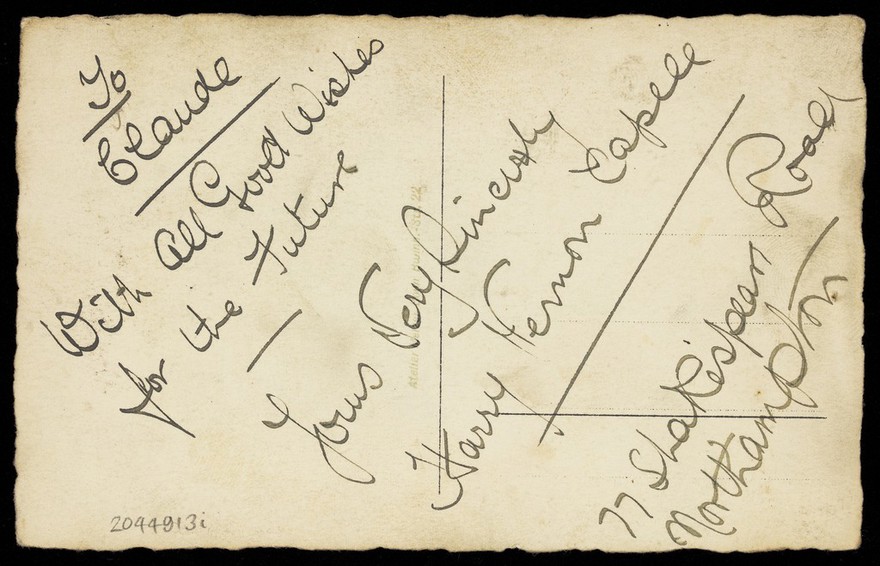 To
Claude
With All Good Wishes
for the Future
Yours Very Sincerely
Harry Vernon Capelle
77 Shakespeare Road
Northampton
2044913i